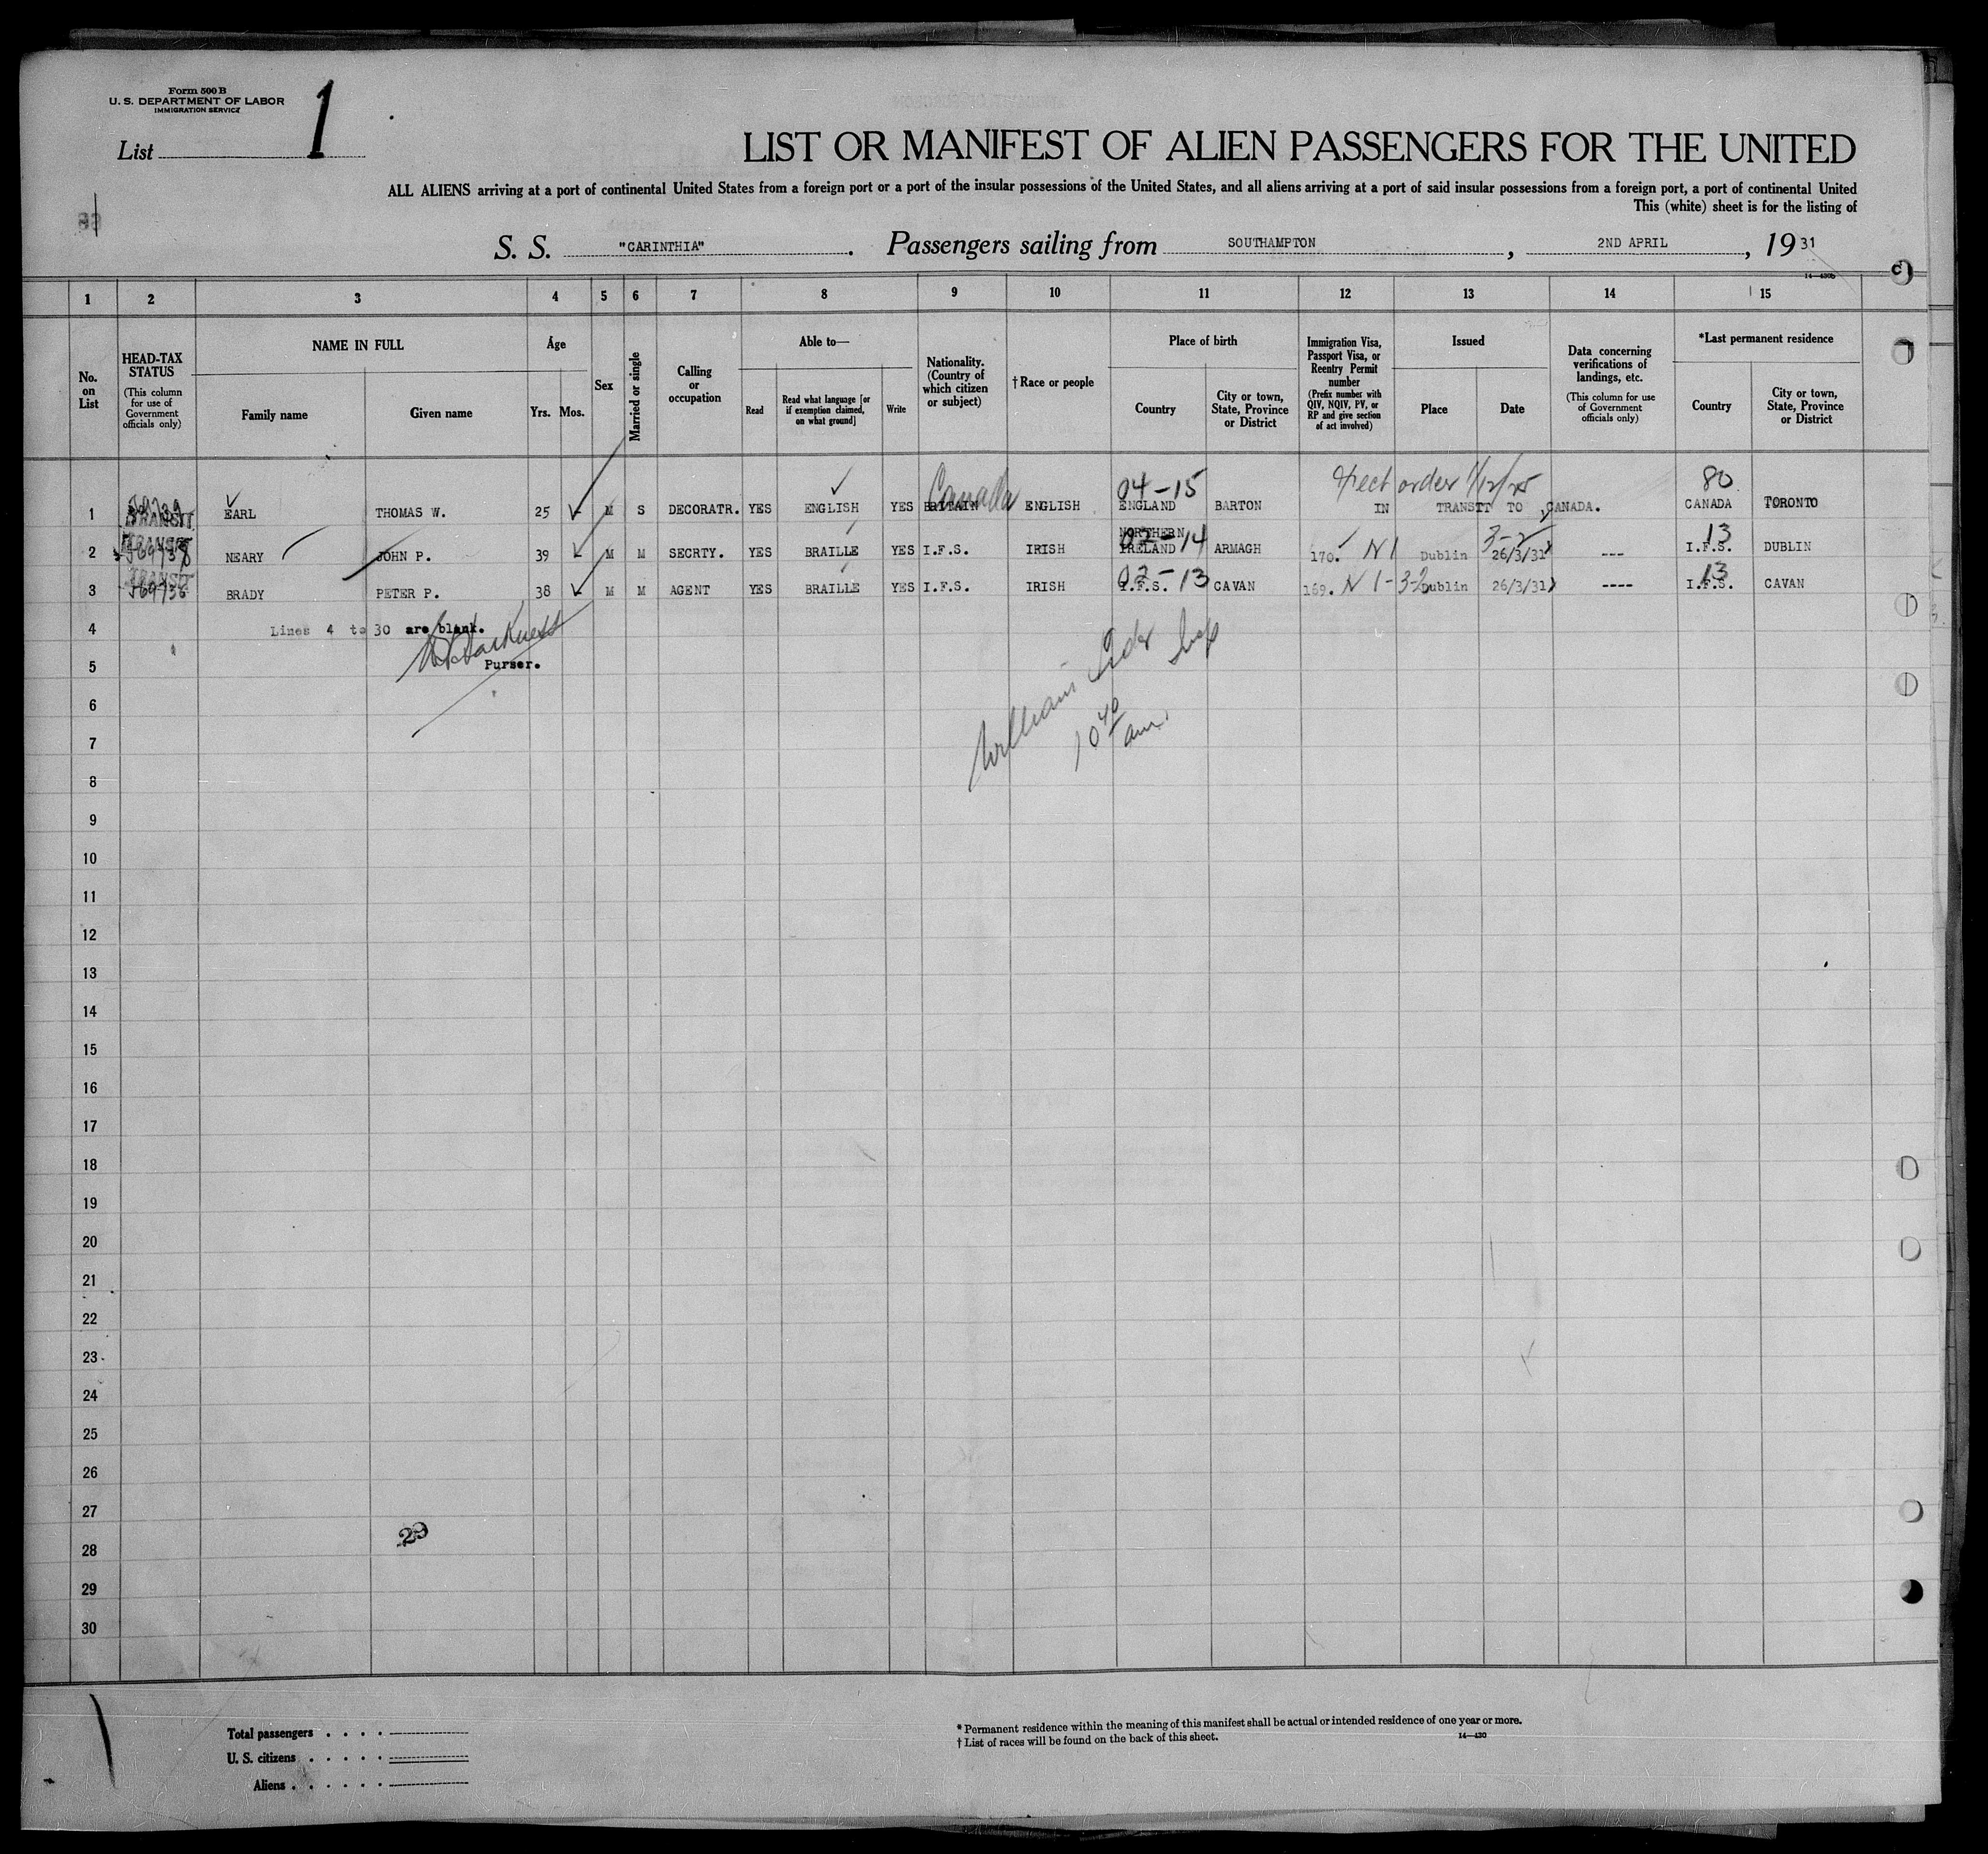 Form 500 B
U. S. DEPARTMENT OF LABOR
IMMIGRATION SERVICE
List 1
LIST OR MANIFEST OF ALIEN PASSENGERS FOR THE UNITED
ALL ALIENS arriving at a port of continental United States from a foreign port or a port of the insular possessions of the United States, and all aliens arriving at a port of said insular possessions from a foreign port, a port of continental United
This (white) sheet is for the listing of
S. S. "CARINTHIA". Passengers sailing from SOUTHAMPTON, 2ND APRIL, 1931
14—430b
1 2 3 4 5 6 7 8 9 10 11 12 13 14 15
No. on List
HEAD-TAX STATUS (This column for use of Government officials only)
NAME IN FULL
Family name Given name
Age
Yrs. Mos.
Sex
Married or single
Calling or occupation
Able to—
Read
Read what language [or if exemption claimed, on what ground]
Write
Nationality. (Country of which citizen or subject)
†Race or people
Place of birth
Country
City or town, State, Province or District
Immigration Visa, Passport Visa, or Reentry Permit number (Prefix number with QIV, NQIV, PV, or RP and give section of act involved)
Issued
Place Date
Data concerning verifications of landings, etc. (This column for use of Government officials only)
*Last permanent residence
Country
City or town, State, Province or District
Canada 04-15 80
1 TRANSIT EARL THOMAS W. 25 M S DECORATR. YES ENGLISH YES BRITAIN ENGLISH ENGLAND BARTON IN TRANSIT TO CANADA. CANADA TORONTO
2 TRANSIT NEARY JOHN P. 39 M M SECRTY. YES BRAILLE YES I.F.S. IRISH NORTHERN IRELAND 02-14 ARMAGH 170. N1 Dublin 3-2 26/3/31 --- 13 I.F.S. DUBLIN
3 TRANSIT BRADY PETER P. 38 M M AGENT YES BRAILLE YES I.F.S. IRISH I.F.S. 02-13 CAVAN 169. N 1-3-2 Dublin 26/3/31 ---- 13 I.F.S. CAVAN
4 Lines 4 to 30 are blank.
5 Purser.
6
7
8
9
10
11
12
13
14
15
16
17
18
19
20
21
22
23
24
25
26
27
28
29
30
William
10 40 am
29
Total passengers
U. S. citizens
Aliens
* Permanent residence within the meaning of this manifest shall be actual or intended residence of one year or more.
† List of races will be found on the back of this sheet.
14—430